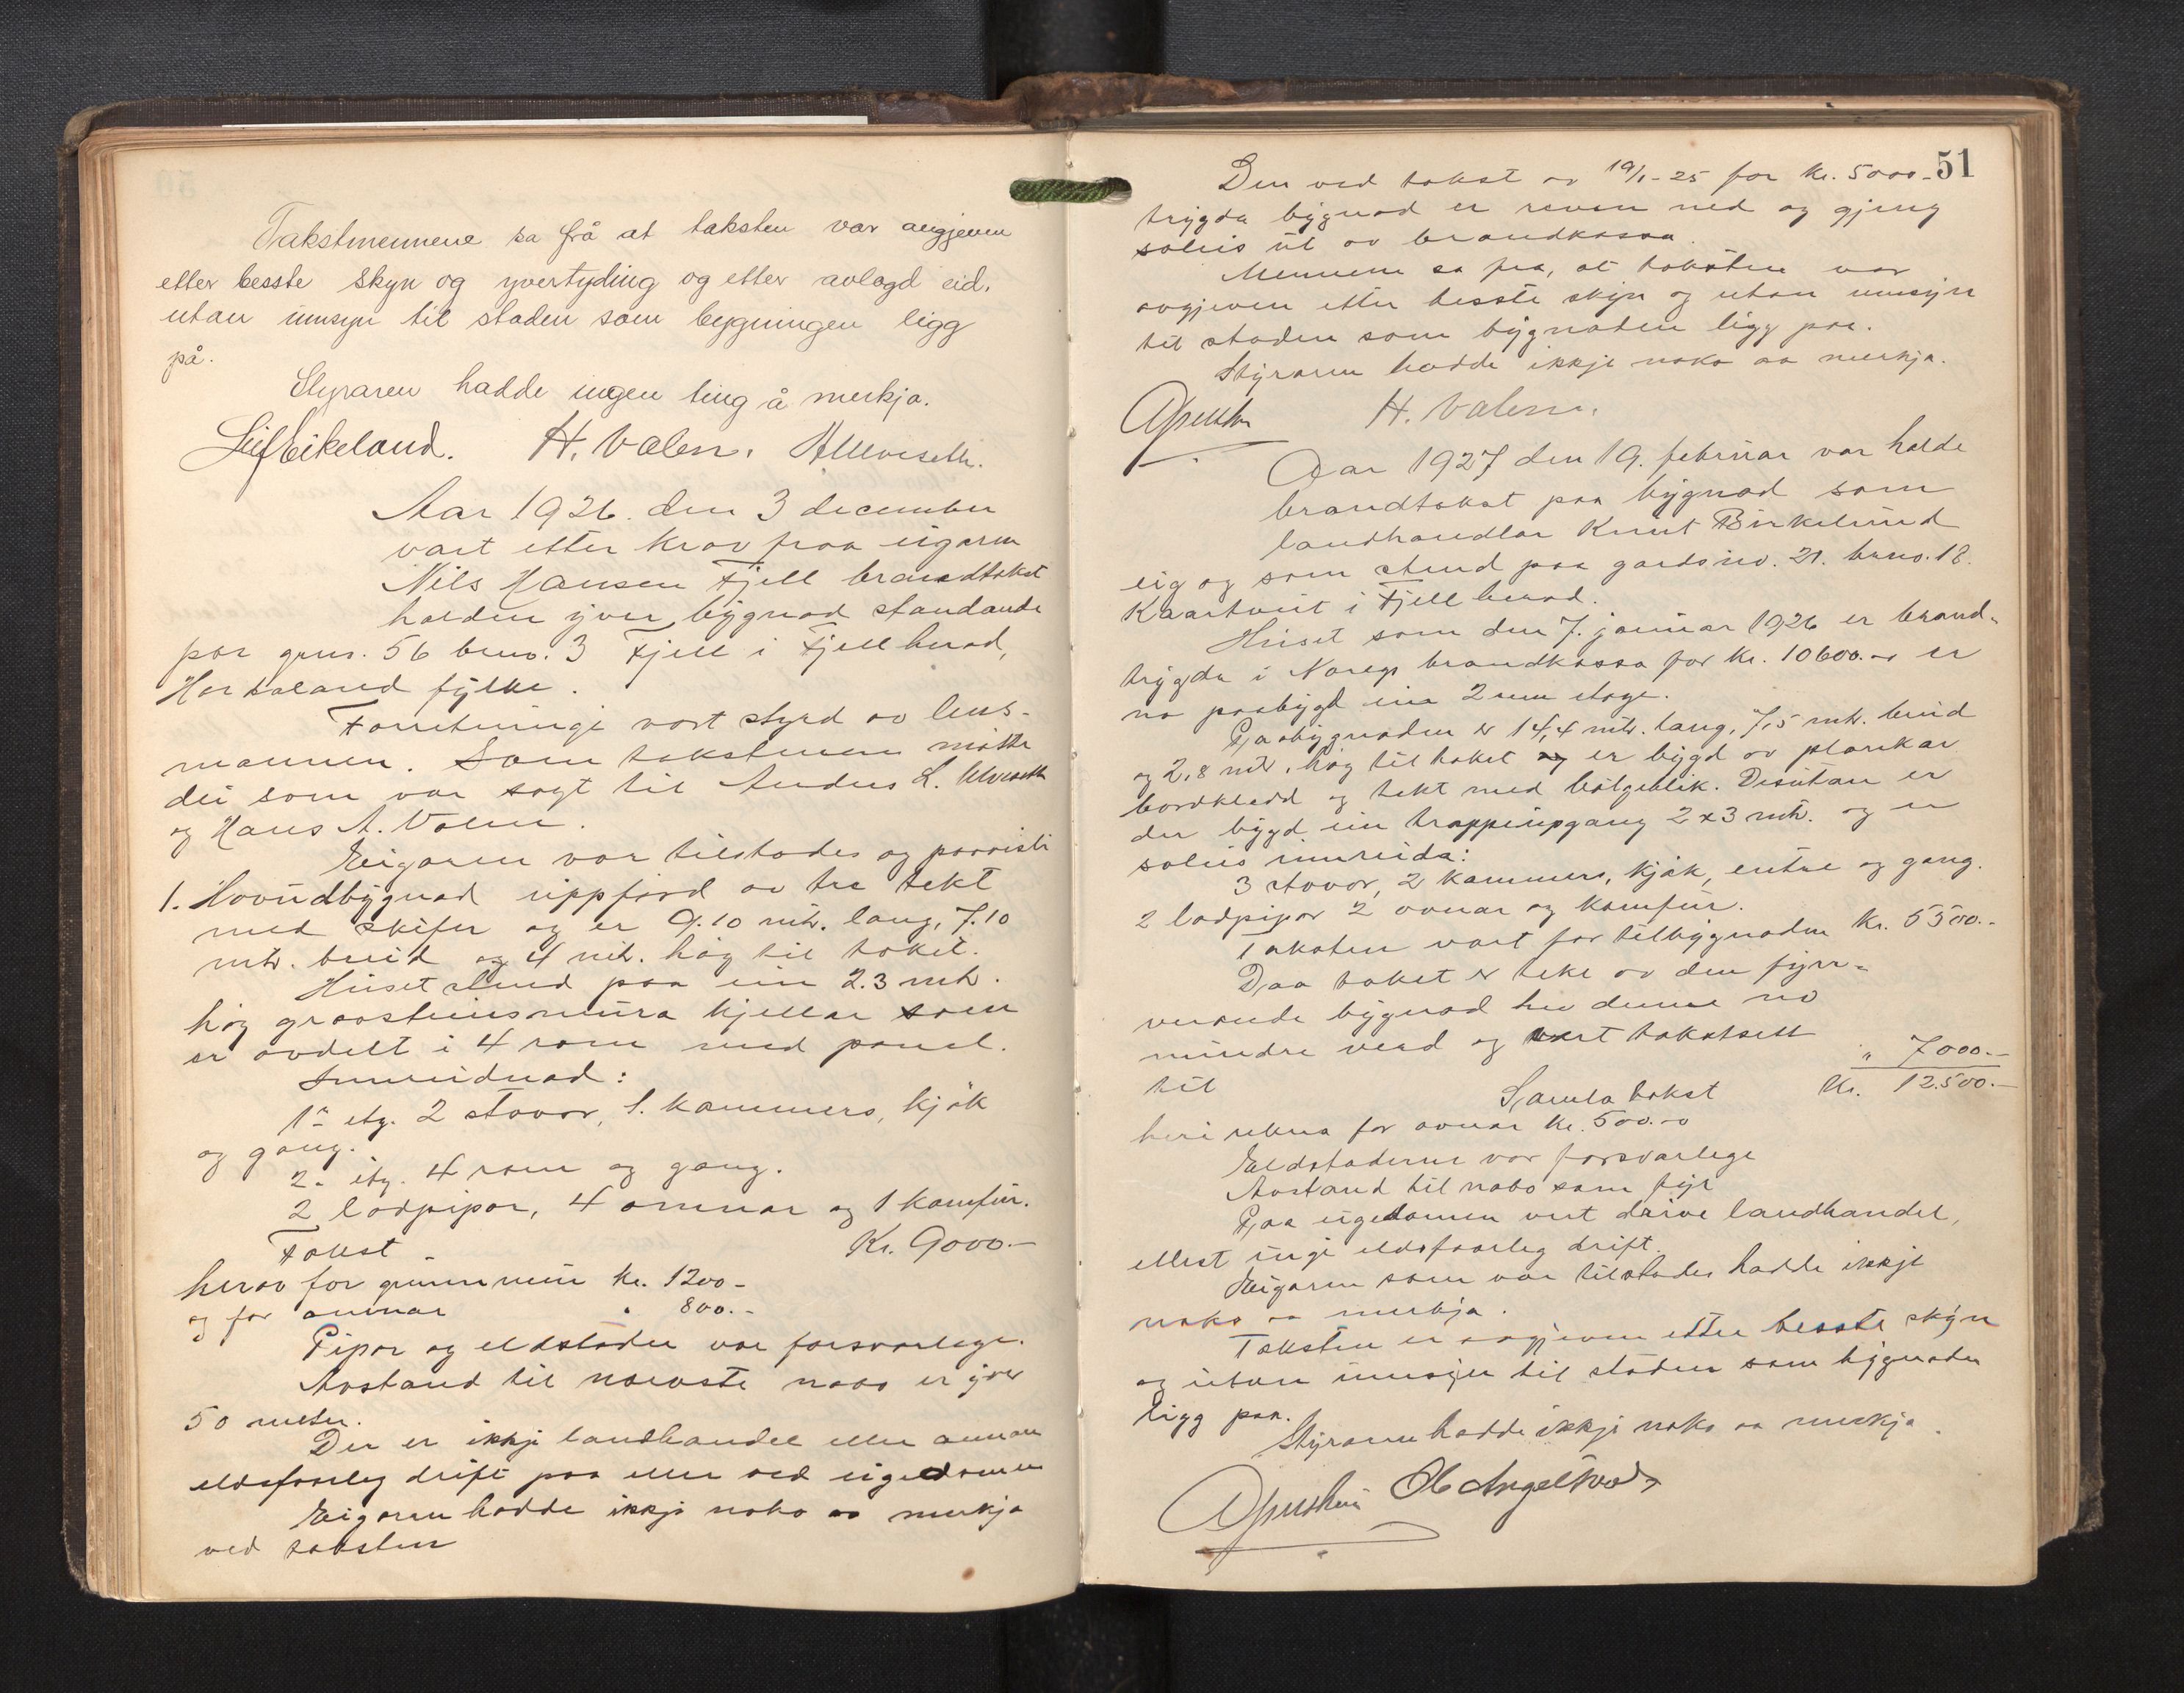 Takstmennene sa frå at taksten var avgjeven
etter besste skyn og yvertyding og etter avlagd eid,
utan umsyn til staden som bygningen ligg
på.
Styraren hadde ingen ting å merkja.
Leif Eikeland. H. Valen. A Ulveseth.
Aar 1926. den 3 december
vart etter krav fraa eigaren
Nils Hansen Fjell brandtakst
halden yver bygnad standande
paa gnr. 56 brno. 3 Fjell i Fjell herad,
Hordaland fylke.
Forretningi vart styrd av lens-
mannen. Som takstmenn møtte
dei som var sagt til Anders L. Ulveseth
og Hans A. Valen.
Eigaren var tilstades og paaviste
1. Hovudbygnad uppførd av tre tekt
med skifer og er 9.10 mtr. lang, 7.10
mtr. breid og 4 mtr. høg til taket.
Huset stend paa ein 2.3 mtr.
høg graasteinsmura kjellar som
er avdelt i 4 rom med panel.
Innreidnad:
1ste etg. 2 stovor, 1. kammers, kjøk
og gang.
2. etg. 4 rom og gang.
2 lodpipor, 4 omnar og 1 komfur.
Takst - Kr. 9000.-
herav for grunnmur kr. 1200-
og for omnar " 800.-
Pipor og eldstader var forsvarlege.
Avstand til næraste nabo er yver
50 meter.
Der er ikkje landhandel eller annan
eldsfaarleg drift paa eller ved eigedomen
Eigaren hadde ikkje noko aa merkja
ved taksten
51
Den ved takst av 19/1-25 for kr. 5000.-
trygda bygnad er reven ned og gjeng
soleis ut av brandkassa.
Mennene sa fra, at taksten var
avgjeven etter besste skyn og utan umsyn
til staden som bygnaden ligg paa.
Styraren hadde ikkje noko aa merkja.
H. Valen.
Aar 1927 den 19. februar var halde
brandtakst paa bygnad som
landhandlar Knut Birkelund
eig og som stend paa gardsno. 21. brno. 18.
Kaartveit i Fjell herad.
Huset som den 7. januar 1926 er brand-
trygda i Noregs brandkassa for kr. 10600.- er
no paabygd ein 2nen etage.
Paabygnaden er 14,4 mtr. lang, 7,5 mtr. breid
og 2,8 mtr. høg til taket og er bygd av plankar
bordkledd og tekt med bølgeblik. Desutan er
der bygd ein trappeupgang 2 x 3 mtr. og er
soleis innreida:
3 stovor, 2 kammers, kjøk, entre og gang.
2 lodpipor 2 ovnar og komfur.
Taksten vart for tilbygnaden Kr. 5500.-
Daa taket er teke av den fyrr-
verande bygnad hev denne no
mindre verd og vert takstsett
til " 7000.-
Samla takst Kr. 12.500.-
heri rekna for ovnar kr. 500.-
Eldstaderne var forsvarlege
Avstand til nabo som fyr
Paa eigedomen vert drive landhandel,
ellest ingi eldsfaarleg drift.
Eigaren som var tilstades hadde ikkje
noko aa merkja.
Taksten er avgjeven etter besste skyn
og utan umsyn til staden som bygnaden
ligg paa.
Styraren hadde ikkje noko aa merkja.
Ol Angeltveit